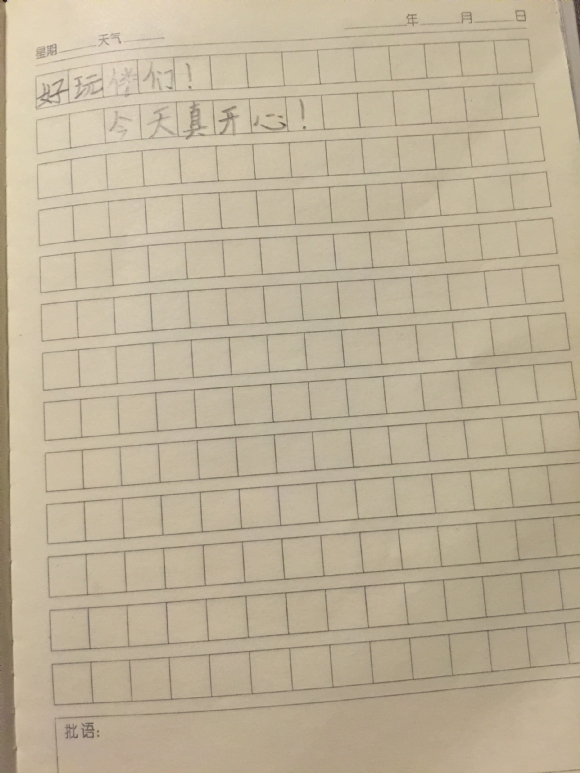 年 月 日
星期 天气
好玩偻们！
今天真开心！
批语：